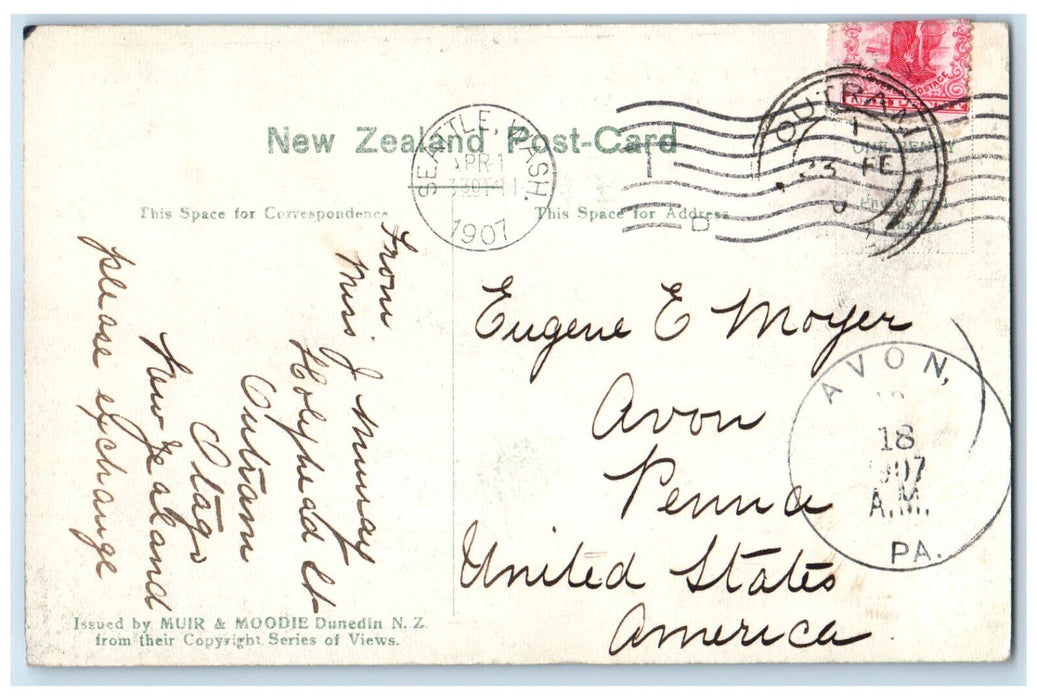 New Zealand Post-Card
This Space for Correspondence
This Space for Address
SEATTLE, WASH.
APR 1
1907
OUTRAM
23 FE
POSTAGE
ONE PENNY
From
Miss J Murray
Holyhead St
Outram
Otago
New Zealand
please exchange
Eugene E Moyer
Avon
Penna
United States
America
AVON,
18
1907
A.M.
PA.
Issued by MUIR & MOODIE Dunedin N.Z.
from their Copyright Series of Views.